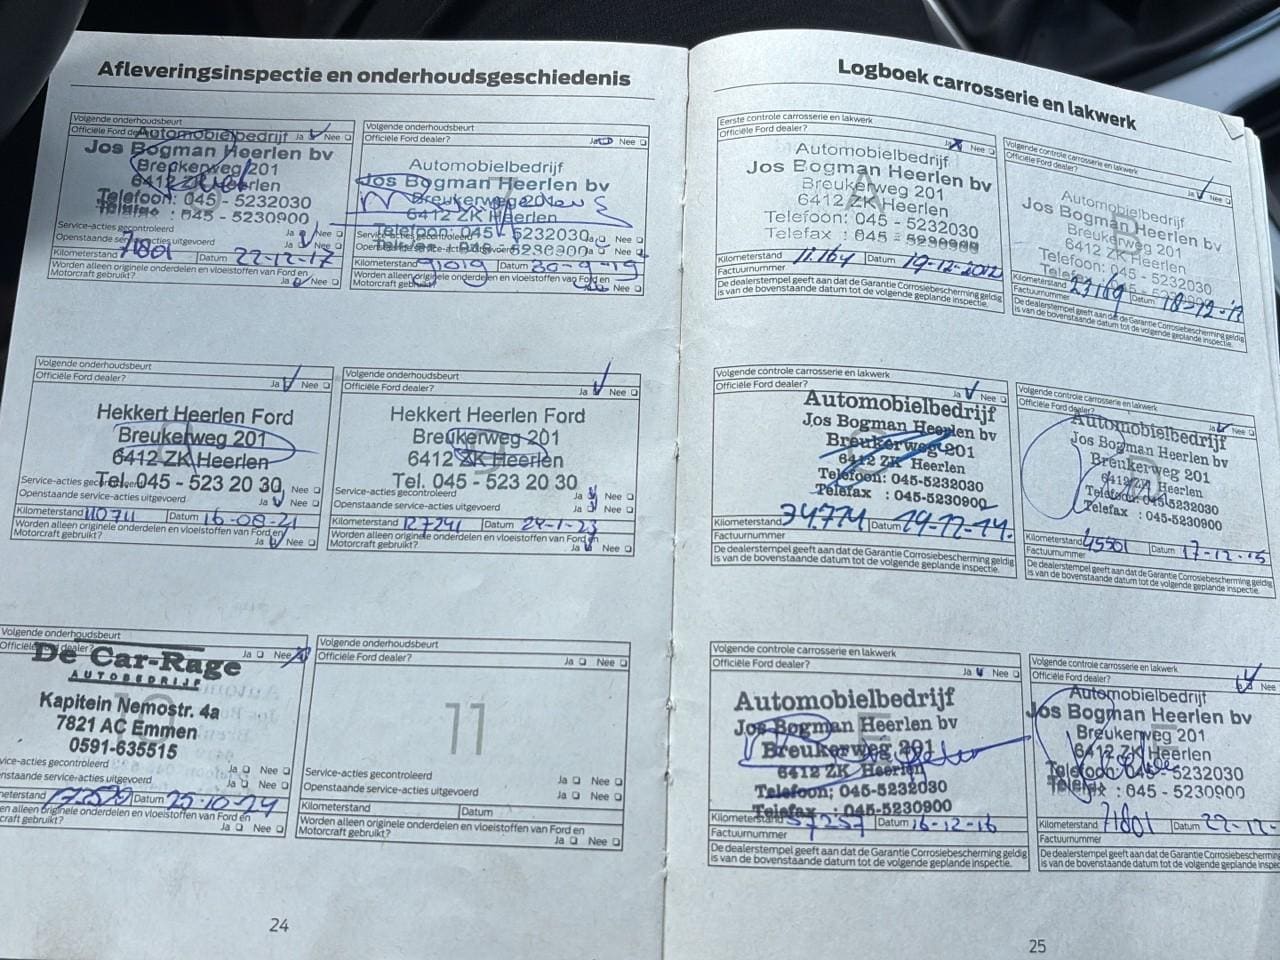 Afleveringsinspectie en onderhoudsgeschiedenis
Volgende onderhoudsbeurt
Officiële Ford dealer? Ja Nee
Automobielbedrijf
Jos Bogman Heerlen bv
Breukerweg 201
6412 ZK Heerlen
Telefoon: 045 - 5232030
Telefax : 045 - 5230900
Service-acties gecontroleerd
Openstaande service-acties uitgevoerd
Kilometerstand 71801 Datum 22-12-17
Worden alleen originele onderdelen en vloeistoffen van Ford en
Motorcraft gebruikt? Ja Nee
Volgende onderhoudsbeurt
Officiële Ford dealer? Ja Nee
Automobielbedrijf
Jos Bogman Heerlen bv
Breukerweg 201
6412 ZK Heerlen
Telefoon: 045 - 5232030
Telefax : 045 - 5230900
Service-acties gecontroleerd Ja Nee
Openstaande service-acties uitgevoerd Ja Nee
Kilometerstand 91019 Datum 30-9-19
Worden alleen originele onderdelen en vloeistoffen van Ford en
Motorcraft gebruikt? Nee
Volgende onderhoudsbeurt
Officiële Ford dealer? Ja Nee
Hekkert Heerlen Ford
Breukerweg 201
6412 ZK Heerlen
Tel. 045 - 523 20 30
Service-acties gecontroleerd Nee
Openstaande service-acties uitgevoerd Ja Nee
Kilometerstand 110711 Datum 16-08-21
Worden alleen originele onderdelen en vloeistoffen van Ford en
Motorcraft gebruikt? Ja Nee
Volgende onderhoudsbeurt
Officiële Ford dealer? Ja Nee
Hekkert Heerlen Ford
Breukerweg 201
6412 ZK Heerlen
Tel. 045 - 523 20 30
Service-acties gecontroleerd Ja Nee
Openstaande service-acties uitgevoerd Ja Nee
Kilometerstand 127241 Datum 24-1-23
Worden alleen originele onderdelen en vloeistoffen van Ford en
Motorcraft gebruikt? Ja Nee
Volgende onderhoudsbeurt
Officiële Ford dealer? Ja Nee
De Car-Rage
AUTOBEDRIJF
Kapitein Nemostr. 4a
7821 AC Emmen
0591-635515
vice-acties gecontroleerd Ja Nee
nstaande service-acties uitgevoerd Ja Nee
meterstand Datum 25-10-24
en alleen originele onderdelen en vloeistoffen van Ford en
craft gebruikt? Ja Nee
Volgende onderhoudsbeurt
Officiële Ford dealer? Ja Nee
11
Service-acties gecontroleerd Ja Nee
Openstaande service-acties uitgevoerd Ja Nee
Kilometerstand Datum
Worden alleen originele onderdelen en vloeistoffen van Ford en
Motorcraft gebruikt? Ja Nee
24
Logboek carrosserie en lakwerk
Eerste controle carrosserie en lakwerk
Officiële Ford dealer? Ja Nee
Automobielbedrijf
Jos Bogman Heerlen bv
Breukerweg 201
6412 ZK Heerlen
Telefoon: 045 - 5232030
Telefax : 045 - 5230900
Kilometerstand 11.164 Datum 19-12-2012
Factuurnummer
De dealerstempel geeft aan dat de Garantie Corrosiebescherming geldig
is van de bovenstaande datum tot de volgende geplande inspectie.
Volgende controle carrosserie en lakwerk
Officiële Ford dealer? Ja Nee
Automobielbedrijf
Jos Bogman Heerlen bv
Breukerweg 201
6412 ZK Heerlen
Telefoon: 045 - 5232030
Telefax : 045 - 5230900
Kilometerstand 23169 Datum
Factuurnummer
De dealerstempel geeft aan dat de Garantie Corrosiebescherming geldig
is van de bovenstaande datum tot de volgende geplande inspectie.
Volgende controle carrosserie en lakwerk
Officiële Ford dealer? Ja Nee
Automobielbedrijf
Jos Bogman Heerlen bv
Breukerweg 201
6412 ZK Heerlen
Telefoon: 045-5232030
Telefax : 045-5230900
Kilometerstand 34.774 Datum 19-12-14.
Factuurnummer
De dealerstempel geeft aan dat de Garantie Corrosiebescherming geldig
is van de bovenstaande datum tot de volgende geplande inspectie.
Volgende controle carrosserie en lakwerk
Officiële Ford dealer? Ja Nee
Automobielbedrijf
Jos Bogman Heerlen bv
Breukerweg 201
6412 ZK Heerlen
Telefoon: 045-5232030
Telefax : 045-5230900
Kilometerstand 45501 Datum 17-12-15
Factuurnummer
De dealerstempel geeft aan dat de Garantie Corrosiebescherming geldig
is van de bovenstaande datum tot de volgende geplande inspectie.
Volgende controle carrosserie en lakwerk
Officiële Ford dealer? Ja Nee
Automobielbedrijf
Jos Bogman Heerlen bv
Breukerweg 201
6412 ZK Heerlen
Telefoon: 045-5232030
Telefax : 045-5230900
Kilometerstand 57257 Datum 16-12-16
Factuurnummer
De dealerstempel geeft aan dat de Garantie Corrosiebescherming geldig
is van de bovenstaande datum tot de volgende geplande inspectie.
Volgende controle carrosserie en lakwerk
Officiële Ford dealer? Nee
Automobielbedrijf
Jos Bogman Heerlen bv
Breukerweg 201
6412 ZK Heerlen
Telefoon: 045-5232030
Telefax : 045 - 5230900
Kilometerstand 71801 Datum 22-12-
Factuurnummer
De dealerstempel geeft aan dat de Garantie Corrosiebescherming
is van de bovenstaande datum tot de volgende geplande inspec
25